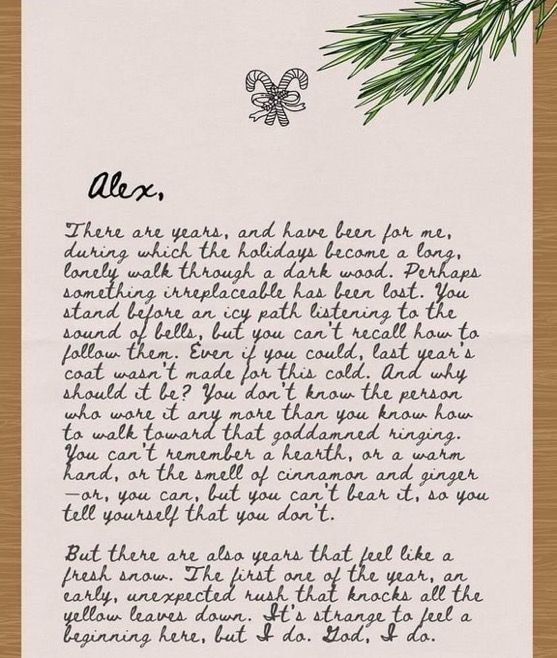 Alex,
There are years, and have been for me,
during which the holidays become a long,
lonely walk through a dark wood. Perhaps
something irreplaceable has been lost. You
stand before an icy path listening to the
sound of bells, but you can't recall how to
follow them. Even if you could, last year's
coat wasn't made for this cold. And why
should it be? You don't know the person
who wore it any more than you know how
to walk toward that goddamned ringing.
You can't remember a hearth, or a warm
hand, or the smell of cinnamon and ginger
—or, you can, but you can't bear it, so you
tell yourself that you don't.
But there are also years that feel like a
fresh snow. The first one of the year, an
early, unexpected rush that knocks all the
yellow leaves down. It's strange to feel a
beginning here, but I do. God, I do.